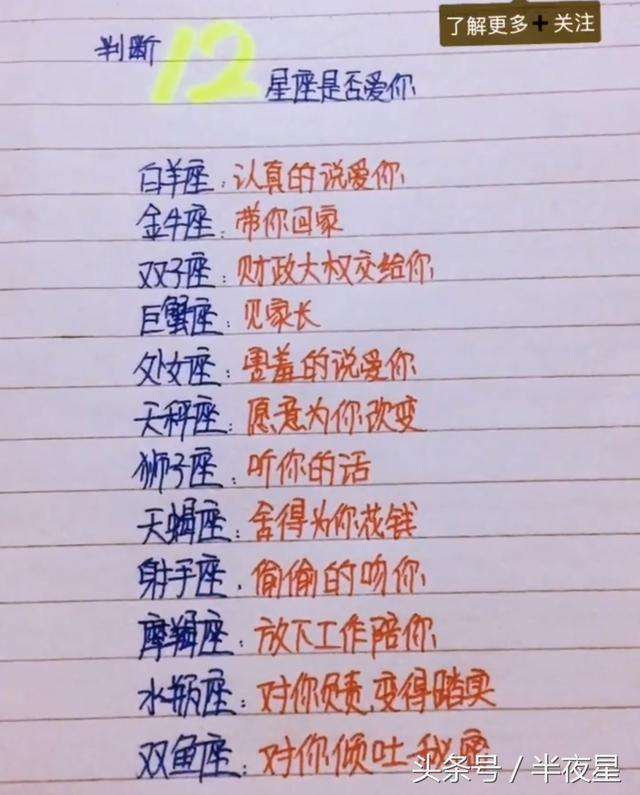 了解更多+关注
判断12
星座是否爱你
白羊座：认真的说爱你
金牛座：带你回家
双子座：财政大权交给你
巨蟹座：见家长
处女座：害羞的说爱你
天秤座：愿意为你改变
狮子座：听你的话
天蝎座：舍得为你花钱
射手座：偷偷的吻你
摩羯座：放下工作陪你
水瓶座：对你负责，变得踏实
双鱼座：对你倾吐秘密
头条号/半夜星